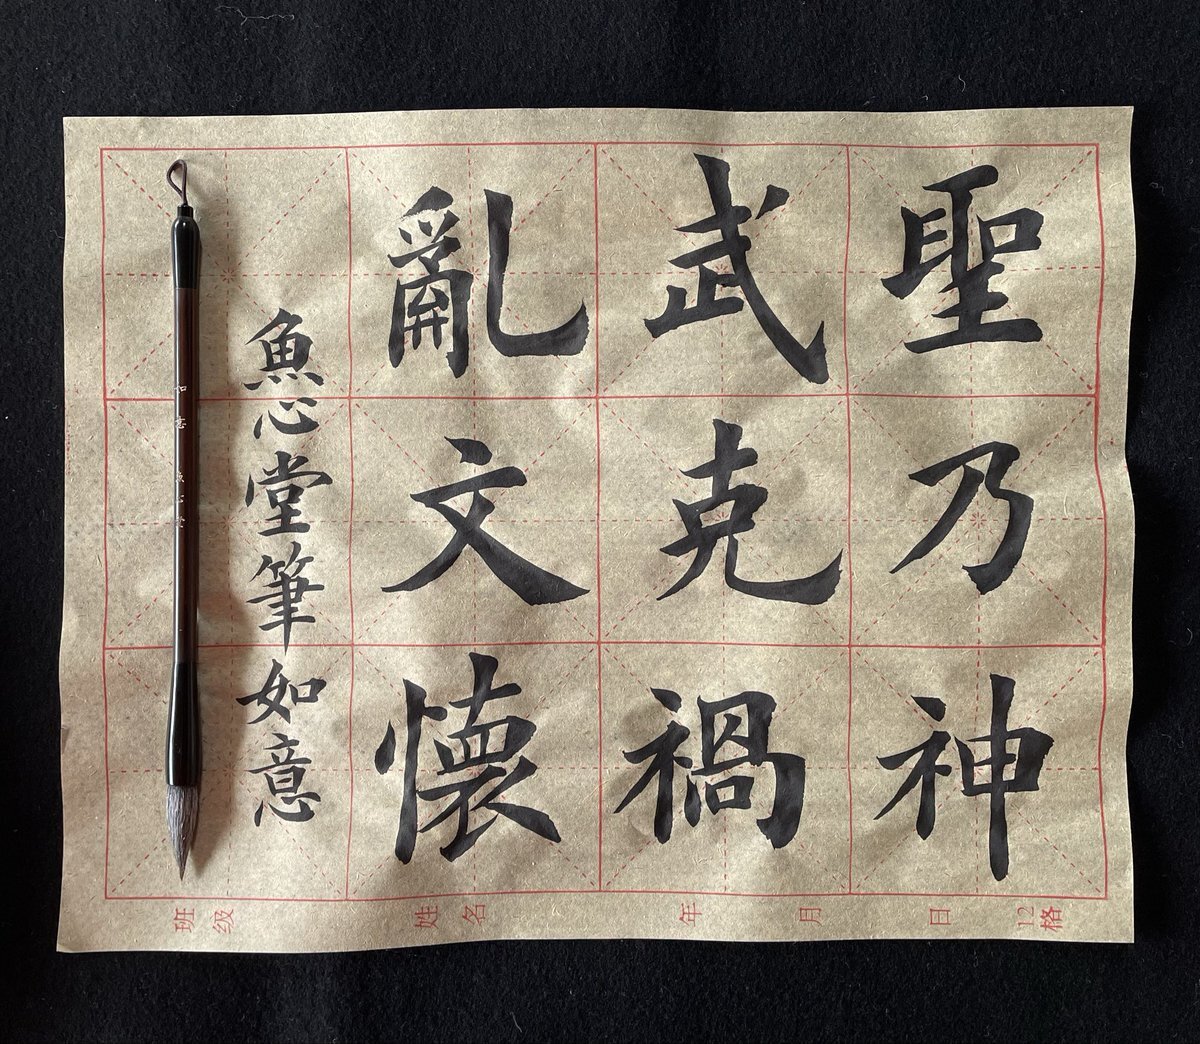 聖乃神
武克禍
亂文懷
魚心堂筆如意
如意 魚心堂
班级 姓名 年 月 日 12格